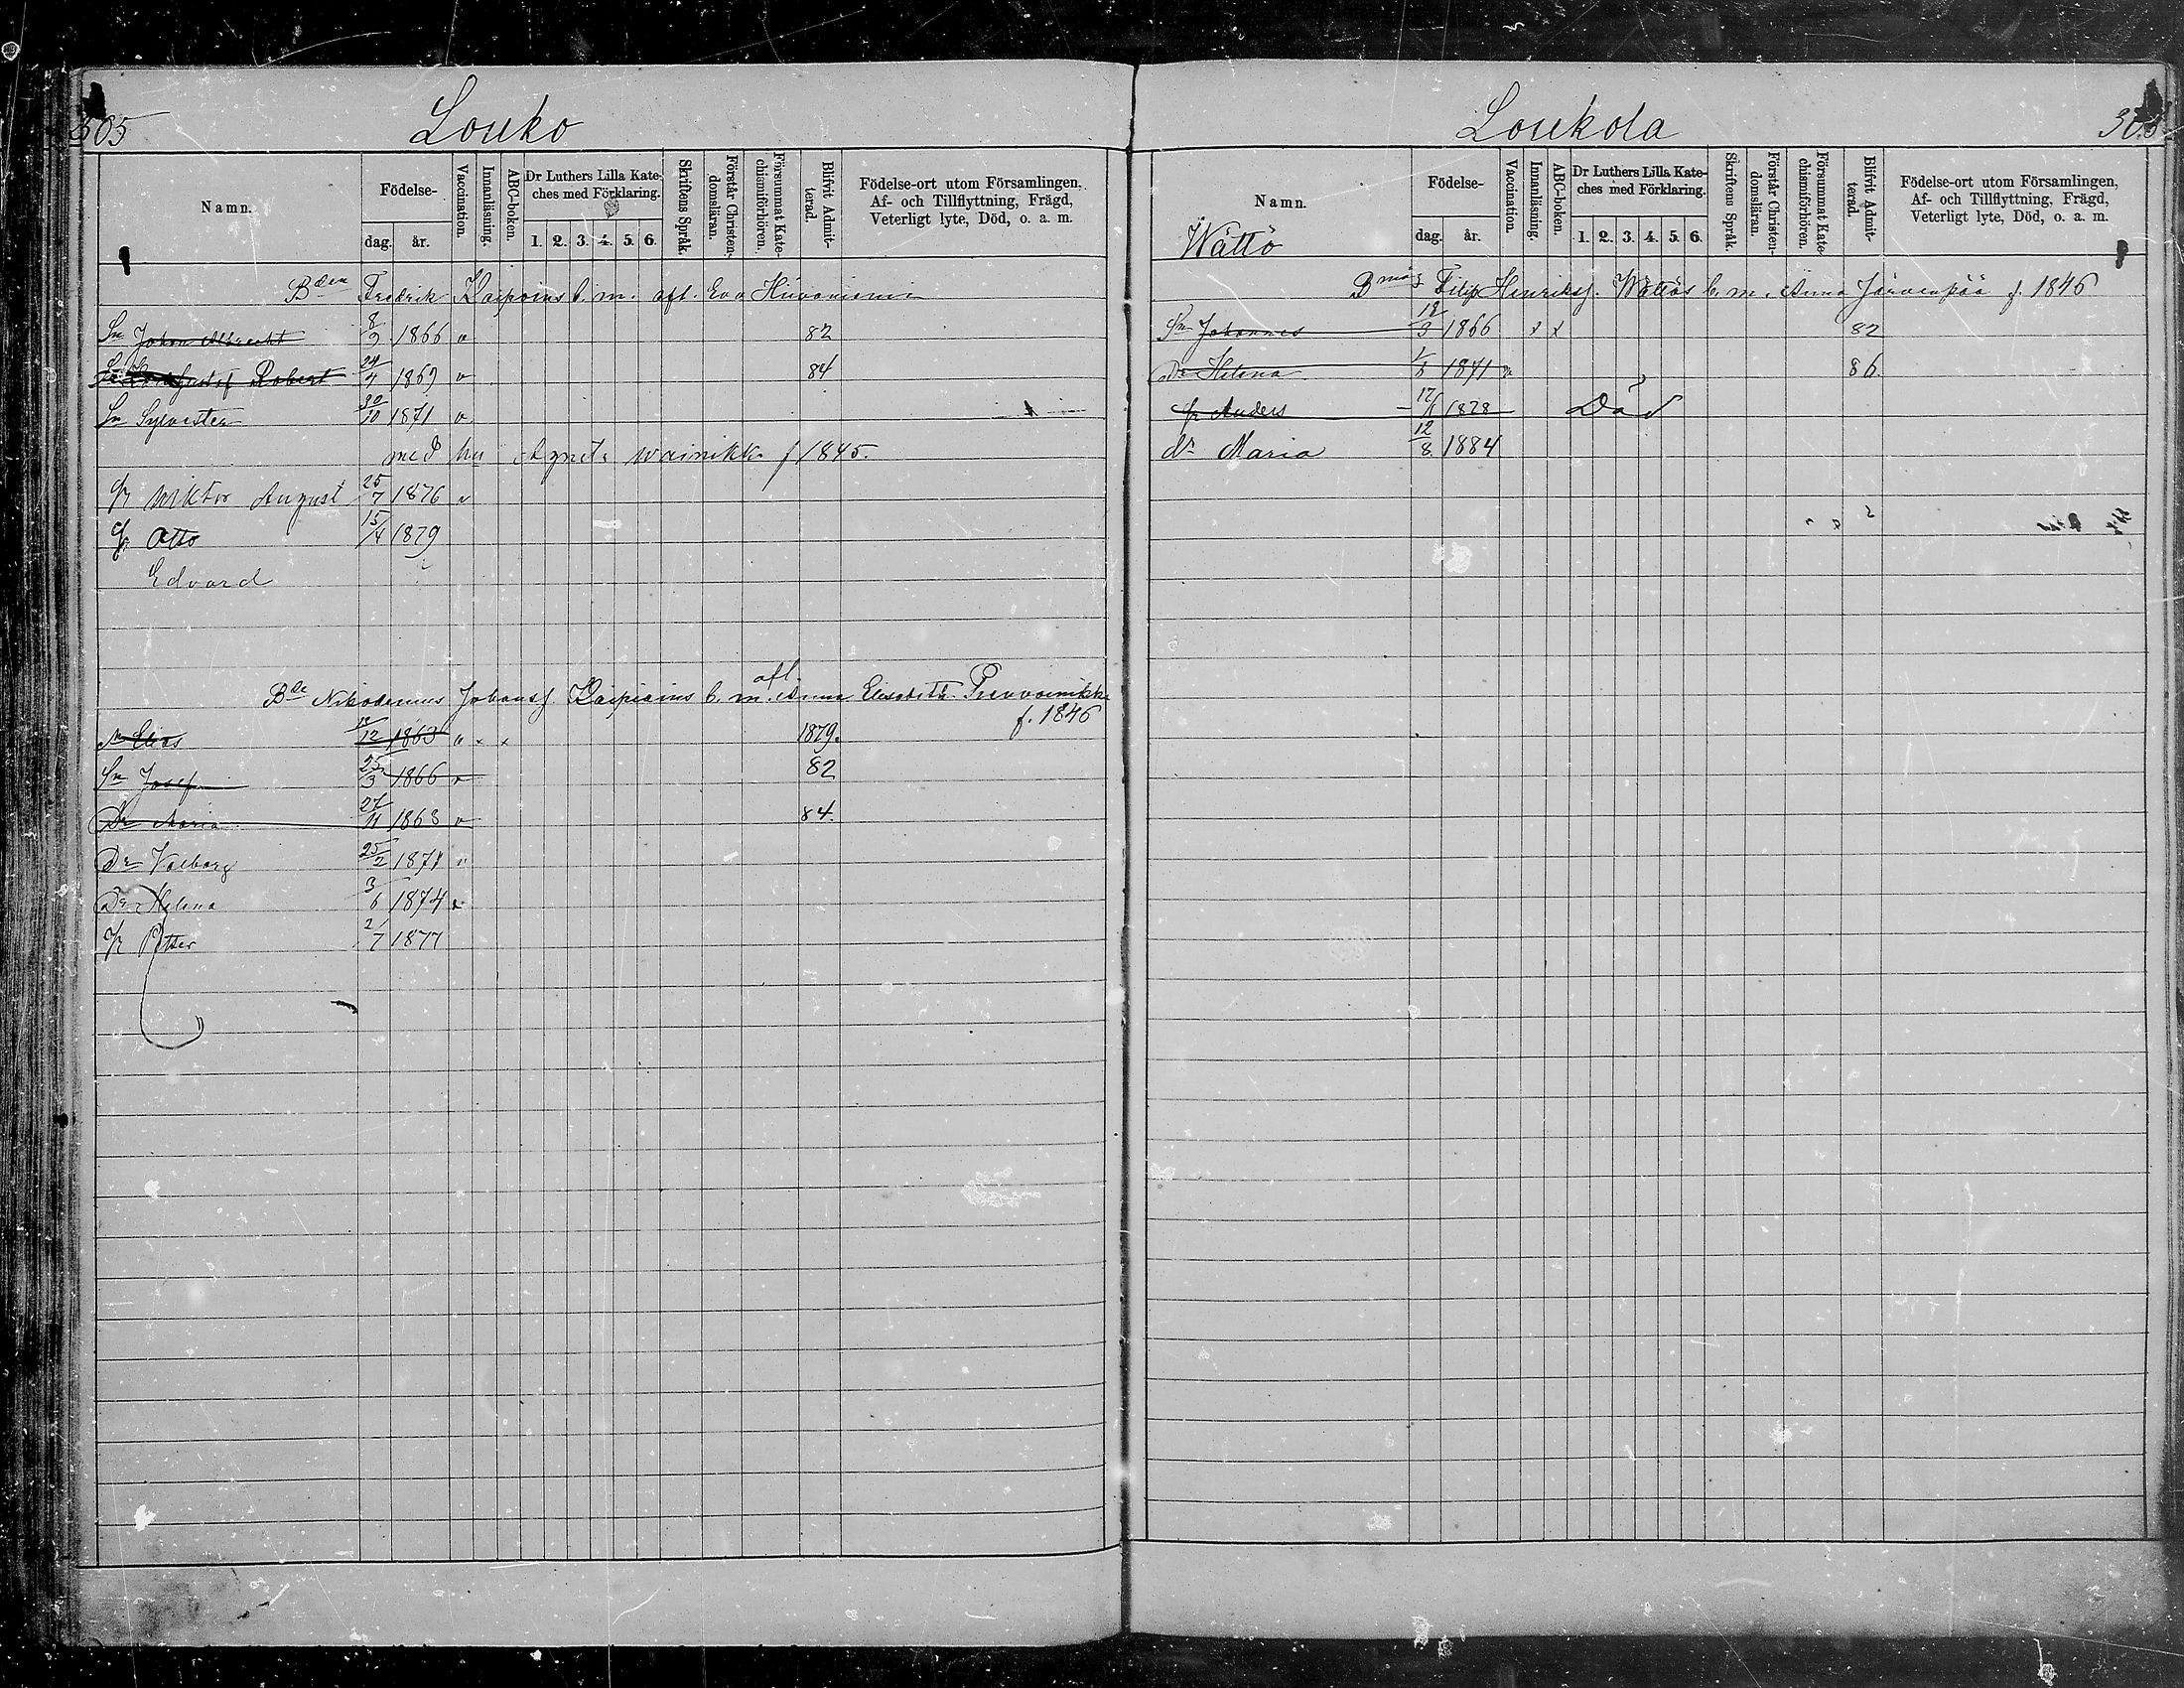 305 Louko
Namn. Födelse- dag. år. Vaccination. Innanläsning. ABC-boken. Dr Luthers Lilla Kateches med Förklaring. 1. 2. 3. 4. 5. 6. Skriftens Språk. Förstår Christendomsläran. Försummat Katechismiförhören. Blifvit Admitterad. Födelse-ort utom Församlingen, Af- och Tillflyttning, Frägd, Veterligt lyte, Död, o. a. m.
Bden Fredrik Kaipoins b. m. afl. Eva
Sn Johan Albrecht 8/9 1866 v 82
Gustaf Robert 24/4 1869 v 84
Sn Sylvester 30/10 1871 v
med hu Agneta wainikka f 1845.
Sn Wiktor August 25/7 1876 v
Sn Otto 15/4 1879
Edvard
afl.
Bde Nikodemus Johansf. Kaipiains b. m. Anna Elisabeth
f. 1846
Sn Elias /12 1863 v x x 1879.
Sn Josef 25/3 1866 v 82
Dr Maria 27/11 1868 v 84.
Dr Valborg 25/2 1871 v
Dr Helena 3/6 1874 v
Sn Petter 2/7 1877
Loukola
Namn. Födelse- dag. år. Vaccination. Innanläsning. ABC-boken. Dr Luthers Lilla Kateches med Förklaring. 1. 2. 3. 4. 5. 6. Skriftens Språk. Förstår Christendomsläran. Försummat Katechismiförhören. Blifvit Admitterad. Födelse-ort utom Församlingen, Af- och Tillflyttning, Frägd, Veterligt lyte, Död, o. a. m.
Wättö
Bmåg Filip Henriksf. Wättös b. m. Anna Järvenpää f. 1846
Sn Johannes 12/3 1866 x x 82
Dr Helena 1871 v 86.
Sn Anders 1878 Död
Dr Maria 12/8 1884